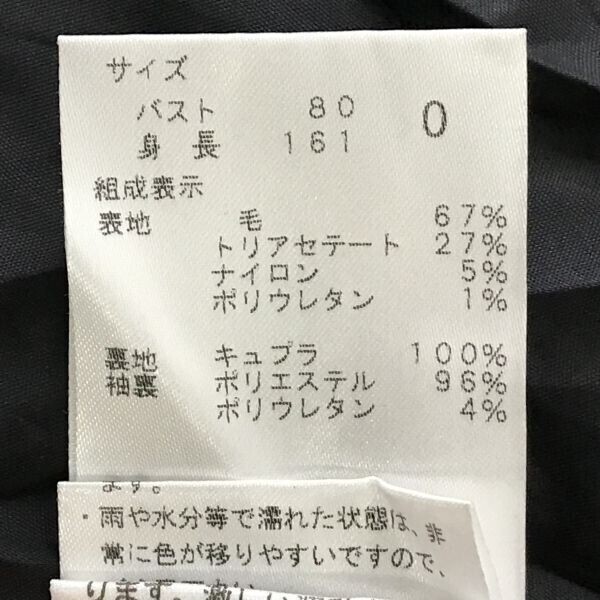 サイズ
バスト 80 0
身長 161
組成表示
表地 毛 67%
トリアセテート 27%
ナイロン 5%
ポリウレタン 1%
裏地 キュプラ 100%
袖裏 ポリエステル 96%
ポリウレタン 4%
ます。
・雨や水分等で濡れた状態は、非
常に色が移りやすいですので、
ります。